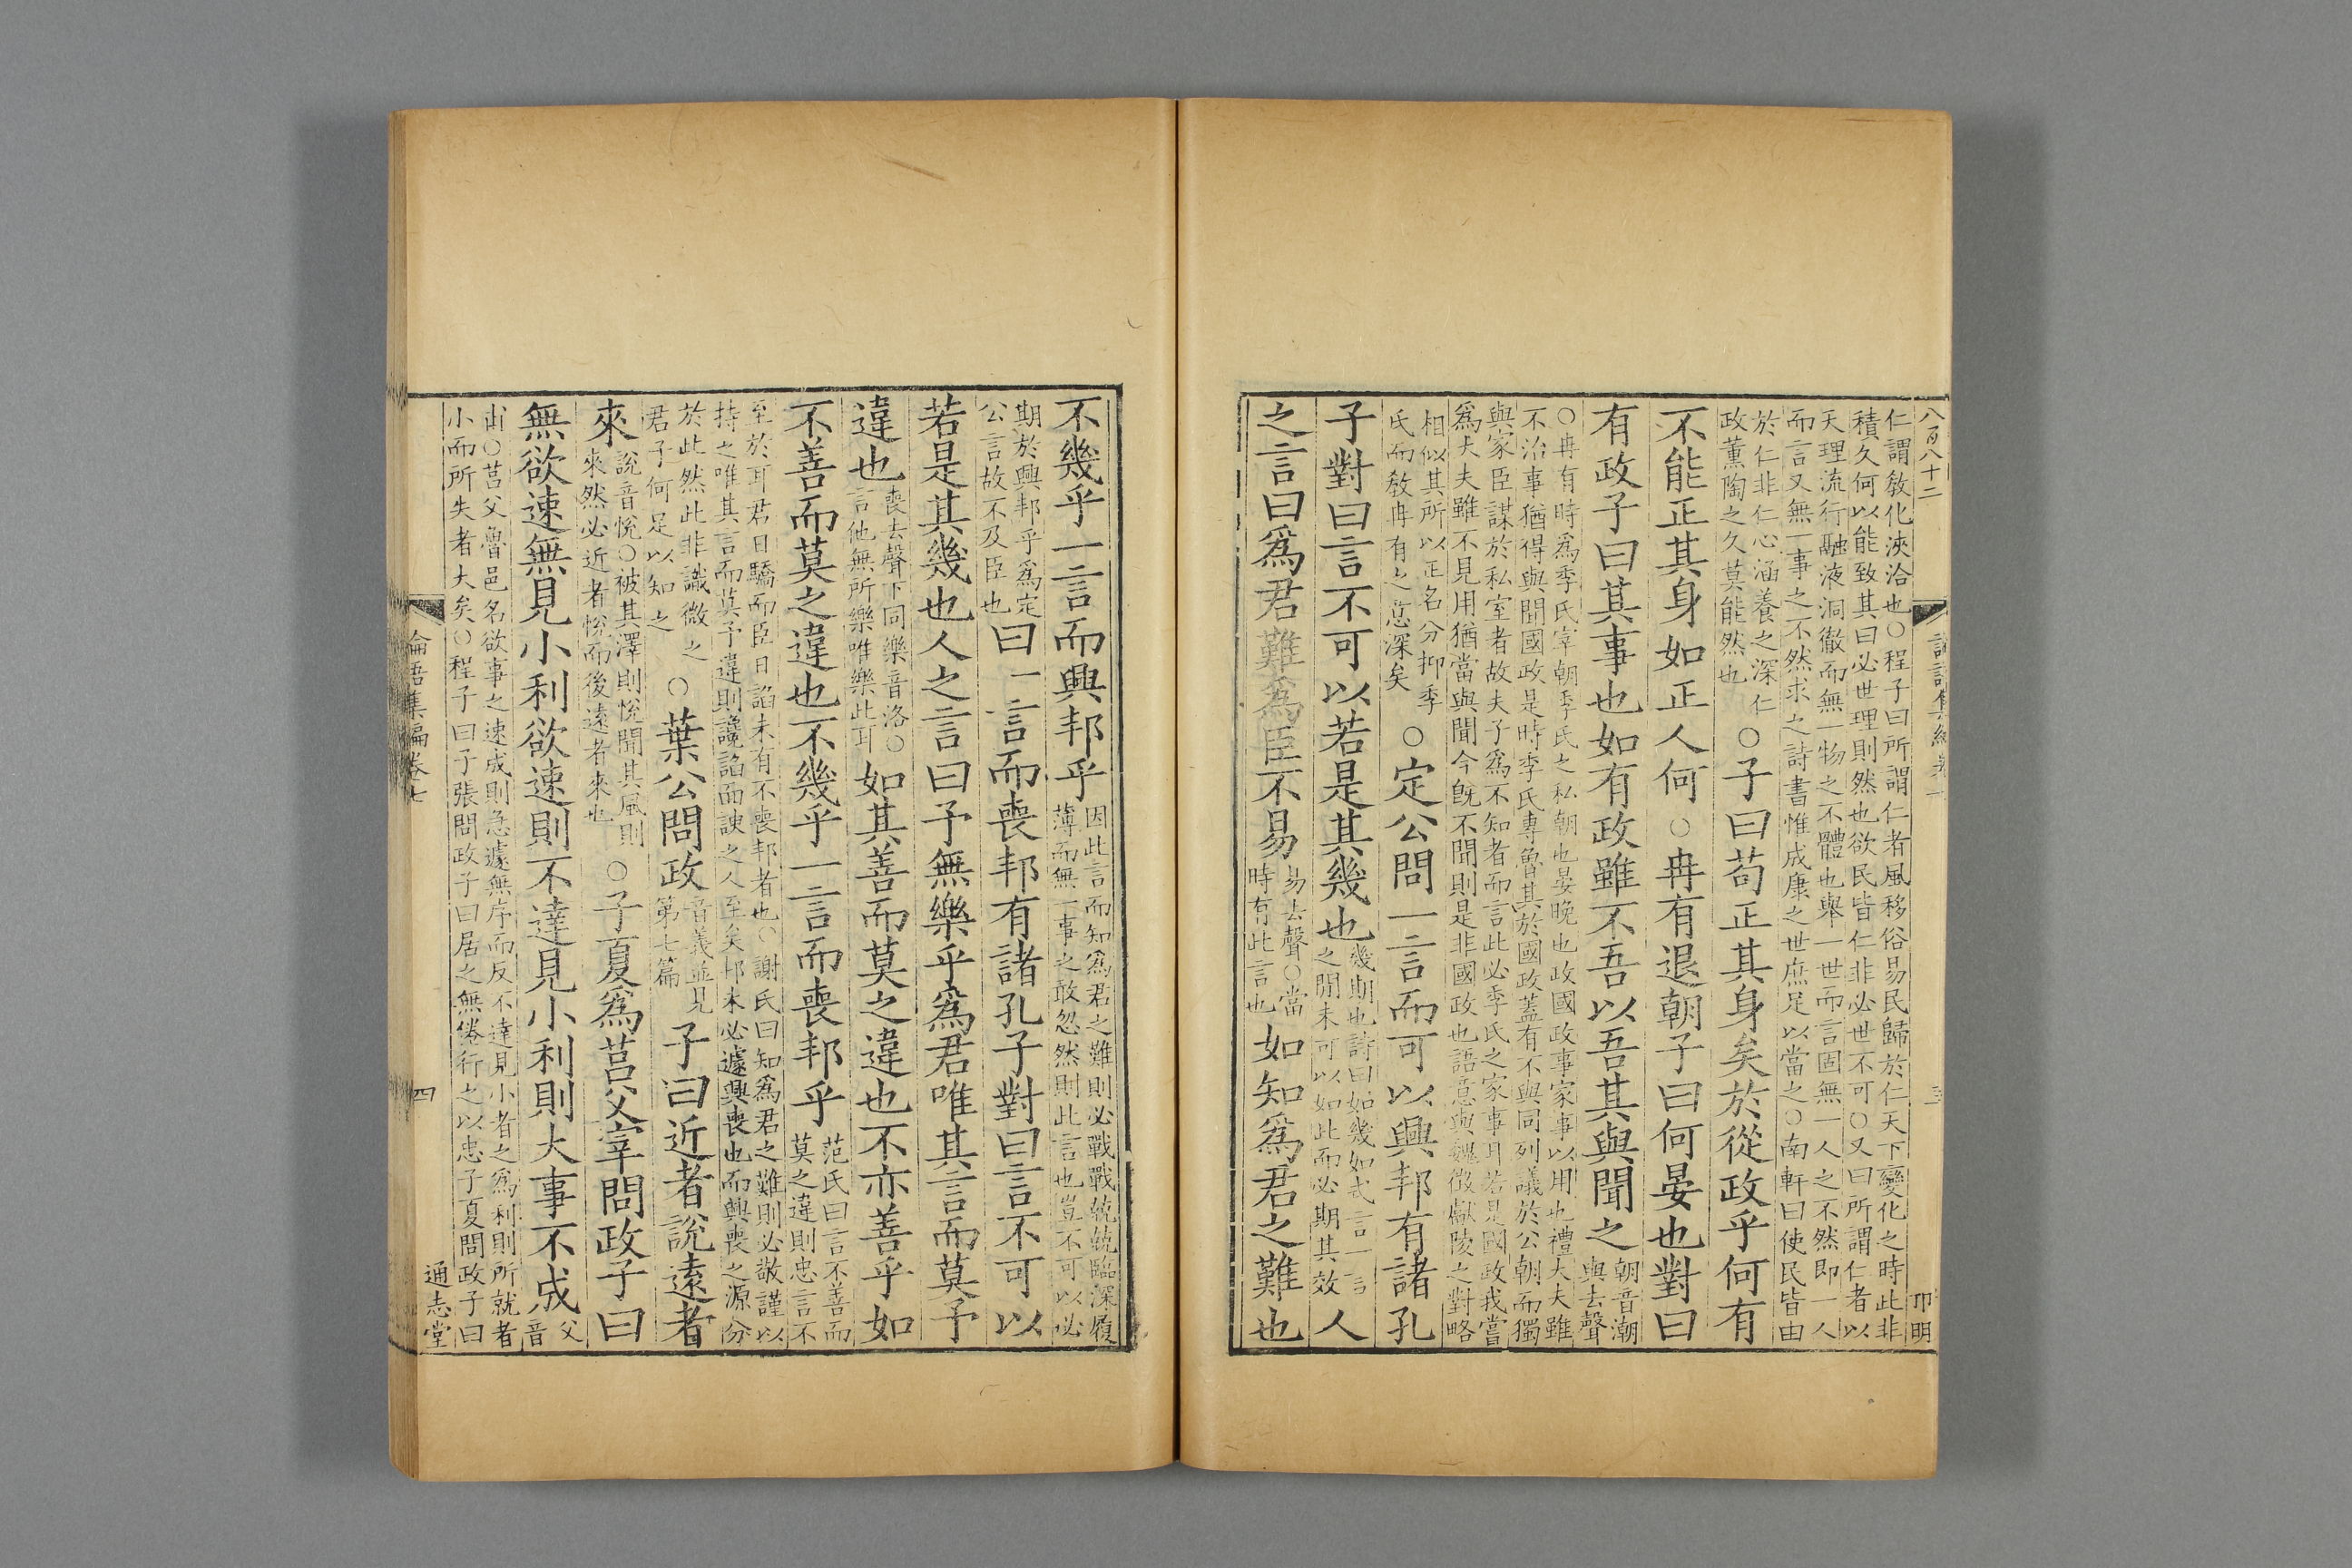 八百八十二
卩明
仁謂敎化浹洽也○程子曰所謂仁者風移俗易民歸於仁天下變化之時此非
積久何以能致其曰必世理則然也欲民皆仁非必世不可○又曰所謂仁者以
天理流行融液洞徹而無一物之不體也舉一世而言固無一人之不然即一人
而言又無一事之不然求之詩書惟成康之世庶足以當之○南軒曰使民皆由
於仁非仁心涵養之深仁
政薰陶之久莫能然也
○子曰苟正其身矣於從政乎何有
不能正其身如正人何○冉有退朝子曰何晏也對曰
有政子曰其事也如有政雖不吾以吾其與聞之
朝音潮
與去聲
○冉有時爲季氏宰朝季氏之私朝也晏晚也政國政事家事以用也禮大夫雖
不治事猶得與聞國政是時季氏專魯其於國政蓋有不與同列議於公朝而獨
與家臣謀於私室者故夫子爲不知者而言此必季氏之家事耳若是國政我嘗
爲大夫雖不見用猶當與聞今旣不聞則是非國政也語意與魏徵獻陵之對略
相似其所以正名分抑季
氏而敎冉有之意深矣
○定公問一言而可以興邦有諸孔
子對曰言不可以若是其幾也
幾期也詩曰如幾如式言一言
之閒未可以如此而必期其效
人
之言曰爲君難爲臣不易
易去聲○當
時有此言也
如知爲君之難也
不幾乎一言而興邦乎
因此言而知爲君之難則必戰戰兢兢臨深履
薄而無一事之敢忽然則此言也豈不可以必
期於興邦乎爲定
公言故不及臣也
曰一言而喪邦有諸孔子對曰言不可以
若是其幾也人之言曰予無樂乎爲君唯其言而莫予
違也
喪去聲下同樂音洛○
言他無所樂唯樂此耳
如其善而莫之違也不亦善乎如
不善而莫之違也不幾乎一言而喪邦乎
范氏曰言不善而
莫之違則忠言不
至於耳君日驕而臣日諂未有不喪邦者也○謝氏曰知爲君之難則必敬謹以
持之唯其言而莫予違則讒諂面諛之人至矣邦未必遽興喪也而興喪之源分
於此然此非識微之
君子何足以知之
○葉公問政
音義並見
第七篇
子曰近者說遠者
來
說音悅○被其澤則悅聞其風則
來然必近者悅而後遠者來也
○子夏爲莒父宰問政子曰
無欲速無見小利欲速則不達見小利則大事不成
父
音
甫○莒父魯邑名欲事之速成則急遽無序而反不達見小者之爲利則所就者
小而所失者大矣○程子曰子張問政子曰居之無倦行之以忠子夏問政子曰
論語集編卷七
四
通志堂